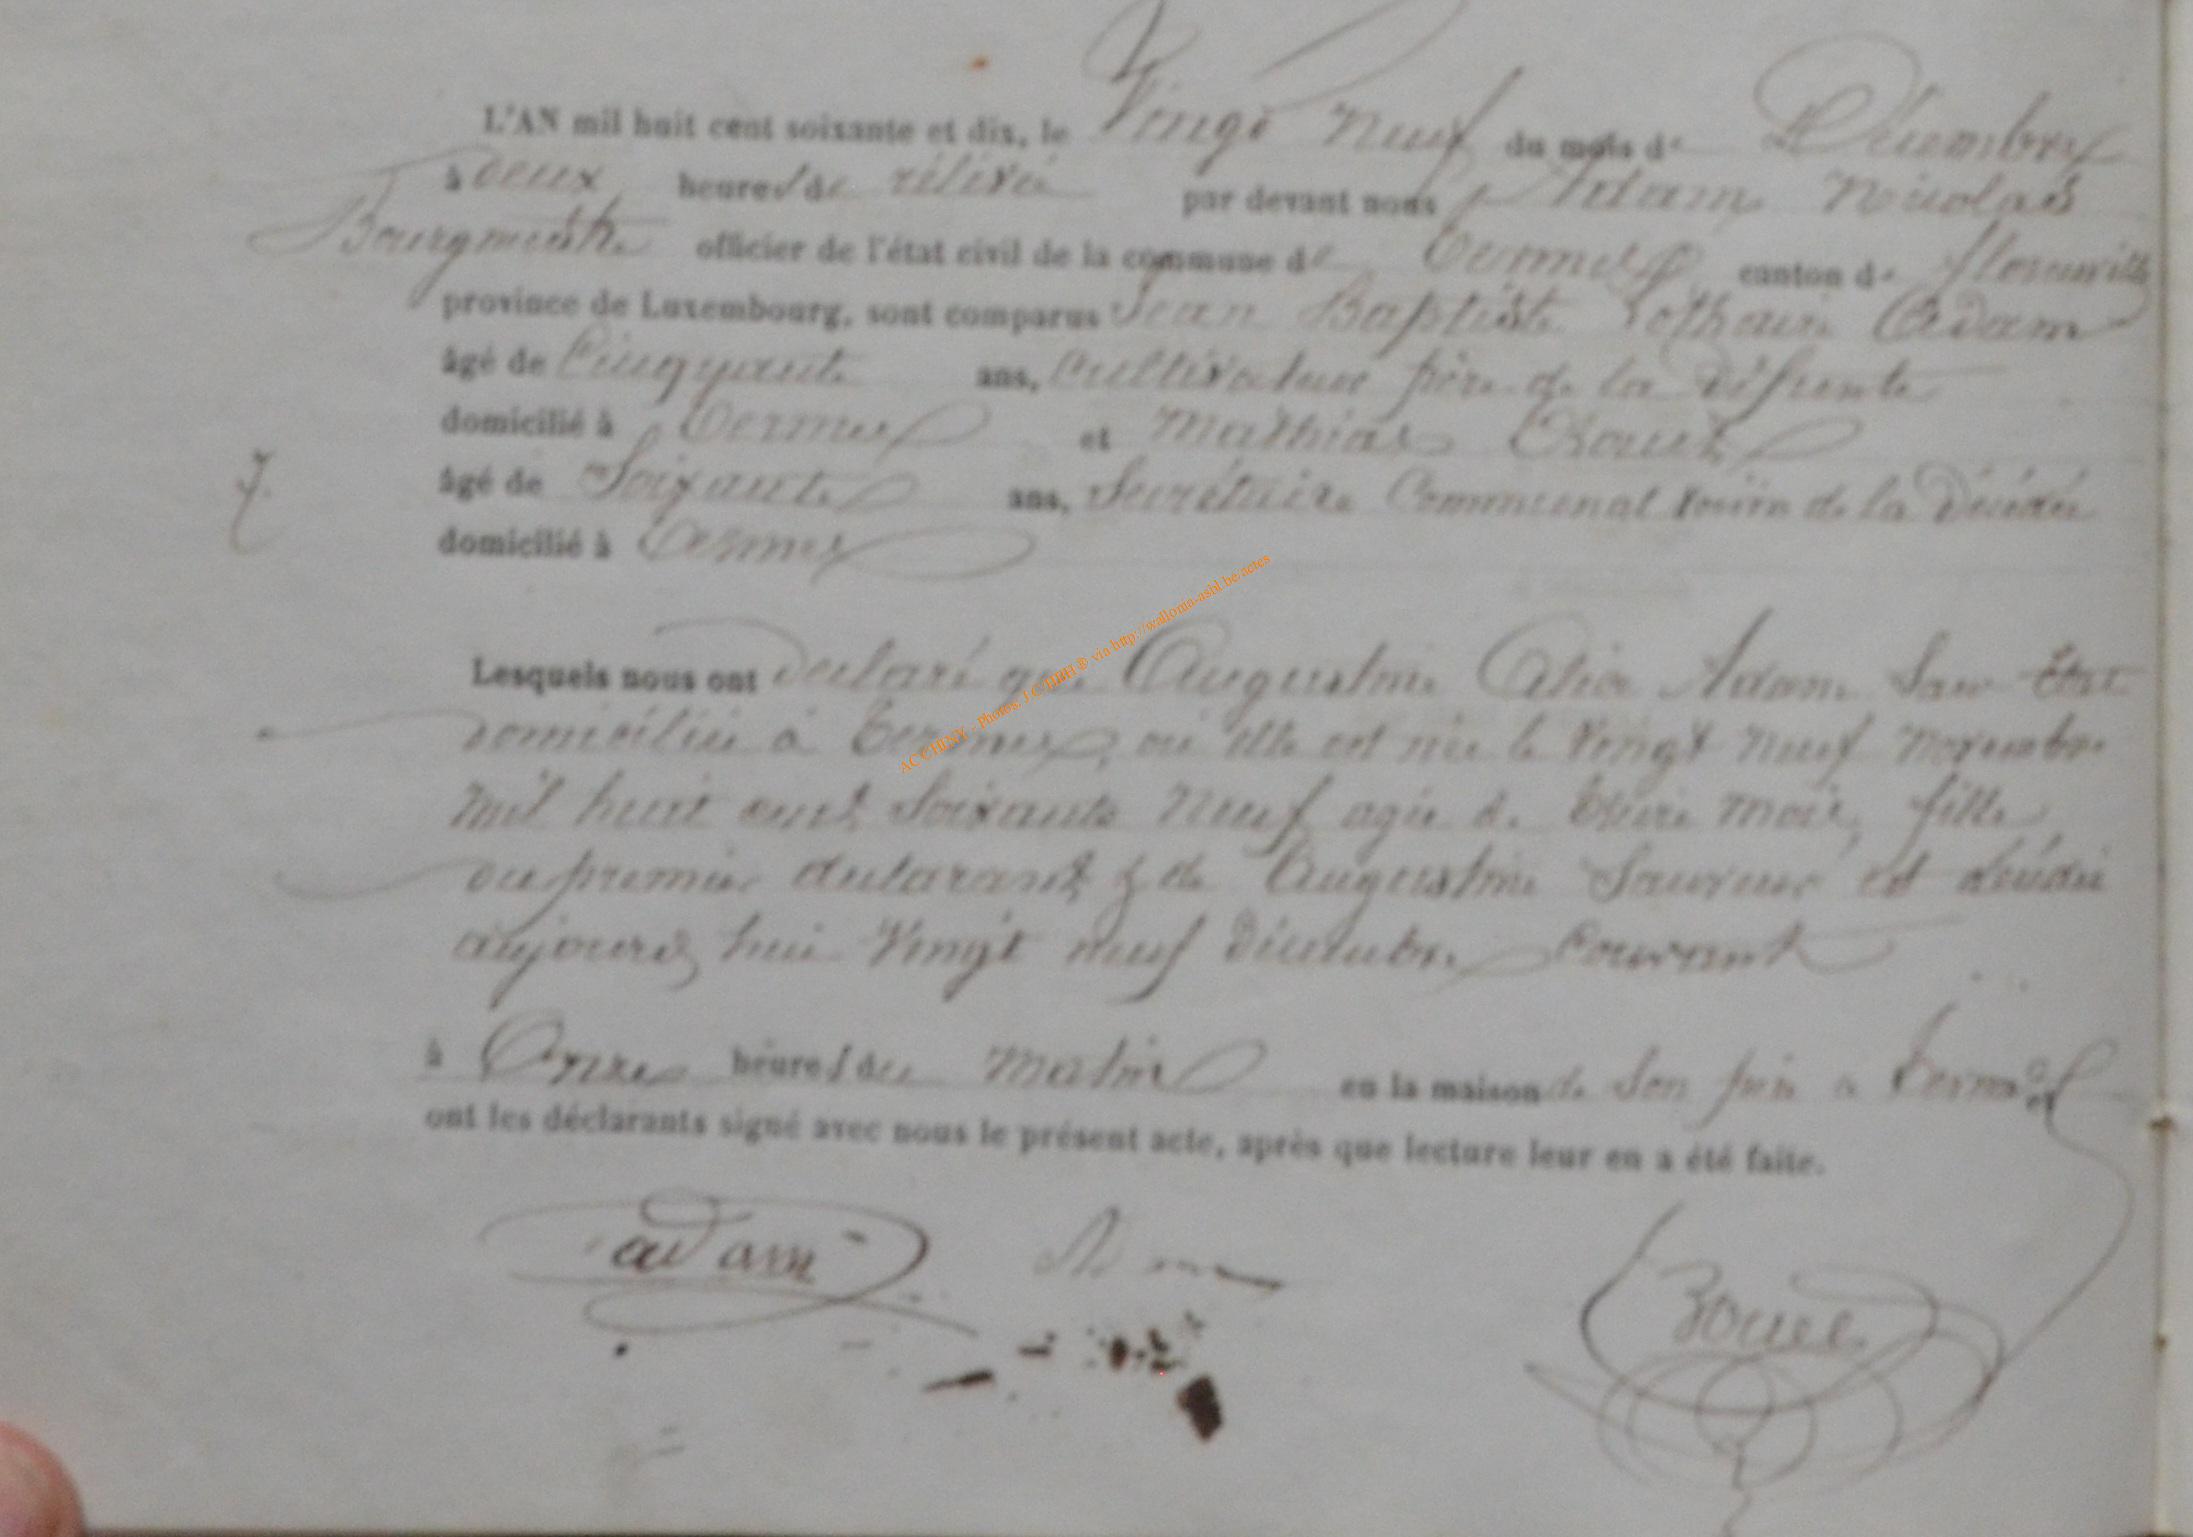 L'AN mil huit cent soixante et dix, le Vingt neuf du mois de Décembre
à deux heures de rélévée par devant nous Adam Nicolas
Bourgmestre officier de l'état civil de la commune de Termes canton de Florenville
province de Luxembourg, sont comparus Jean Baptiste Lothaire Adam
âgé de Cinquante ans, Cultivateur père de la défunte
domicilié à Termes et Mathias
7. âgé de Soixante ans, Secrétaire Communal Voisin de la décédée
domicilié à Termes
Lesquels nous ont déclaré que Augustine Adam Sans État
domiciliée à Termes, où elle est née le Vingt neuf novembre
mil huit cent Soixante neuf agée de treize mois, fille
du premier déclarant & de Augustine Sauveur est décédée
aujourd'hui Vingt neuf décembre Courant
à Onze heures du Matin en la maison de Son père à Termes et
ont les déclarants signé avec nous le présent acte, après que lecture leur en a été faite.
adam
ACCHINY - Photos: JC/HBH ® via http://wallonia-asbl.be/actes